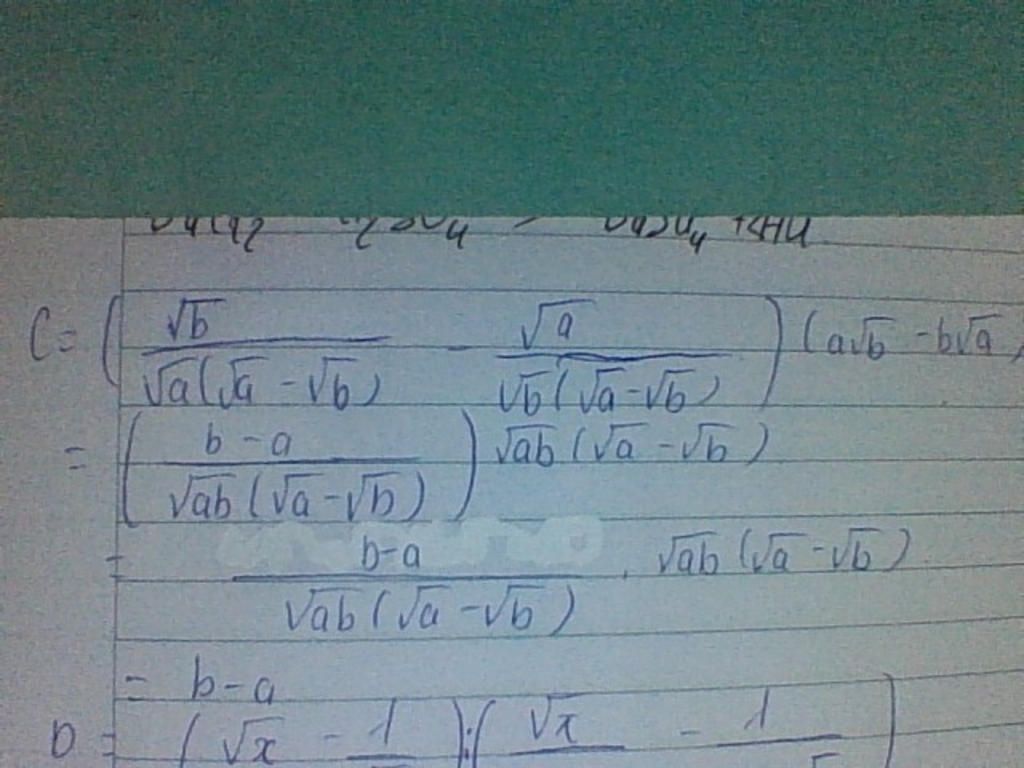 C = ( √b / √a(√a - √b) - √a / √b(√a - √b) ) (a√b - b√a)
= ( b - a / √ab(√a - √b) ) √ab(√a - √b)
= b-a / √ab(√a - √b) . √ab(√a - √b)
= b - a
D = ( √x - 1 ) : ( √x - 1 )